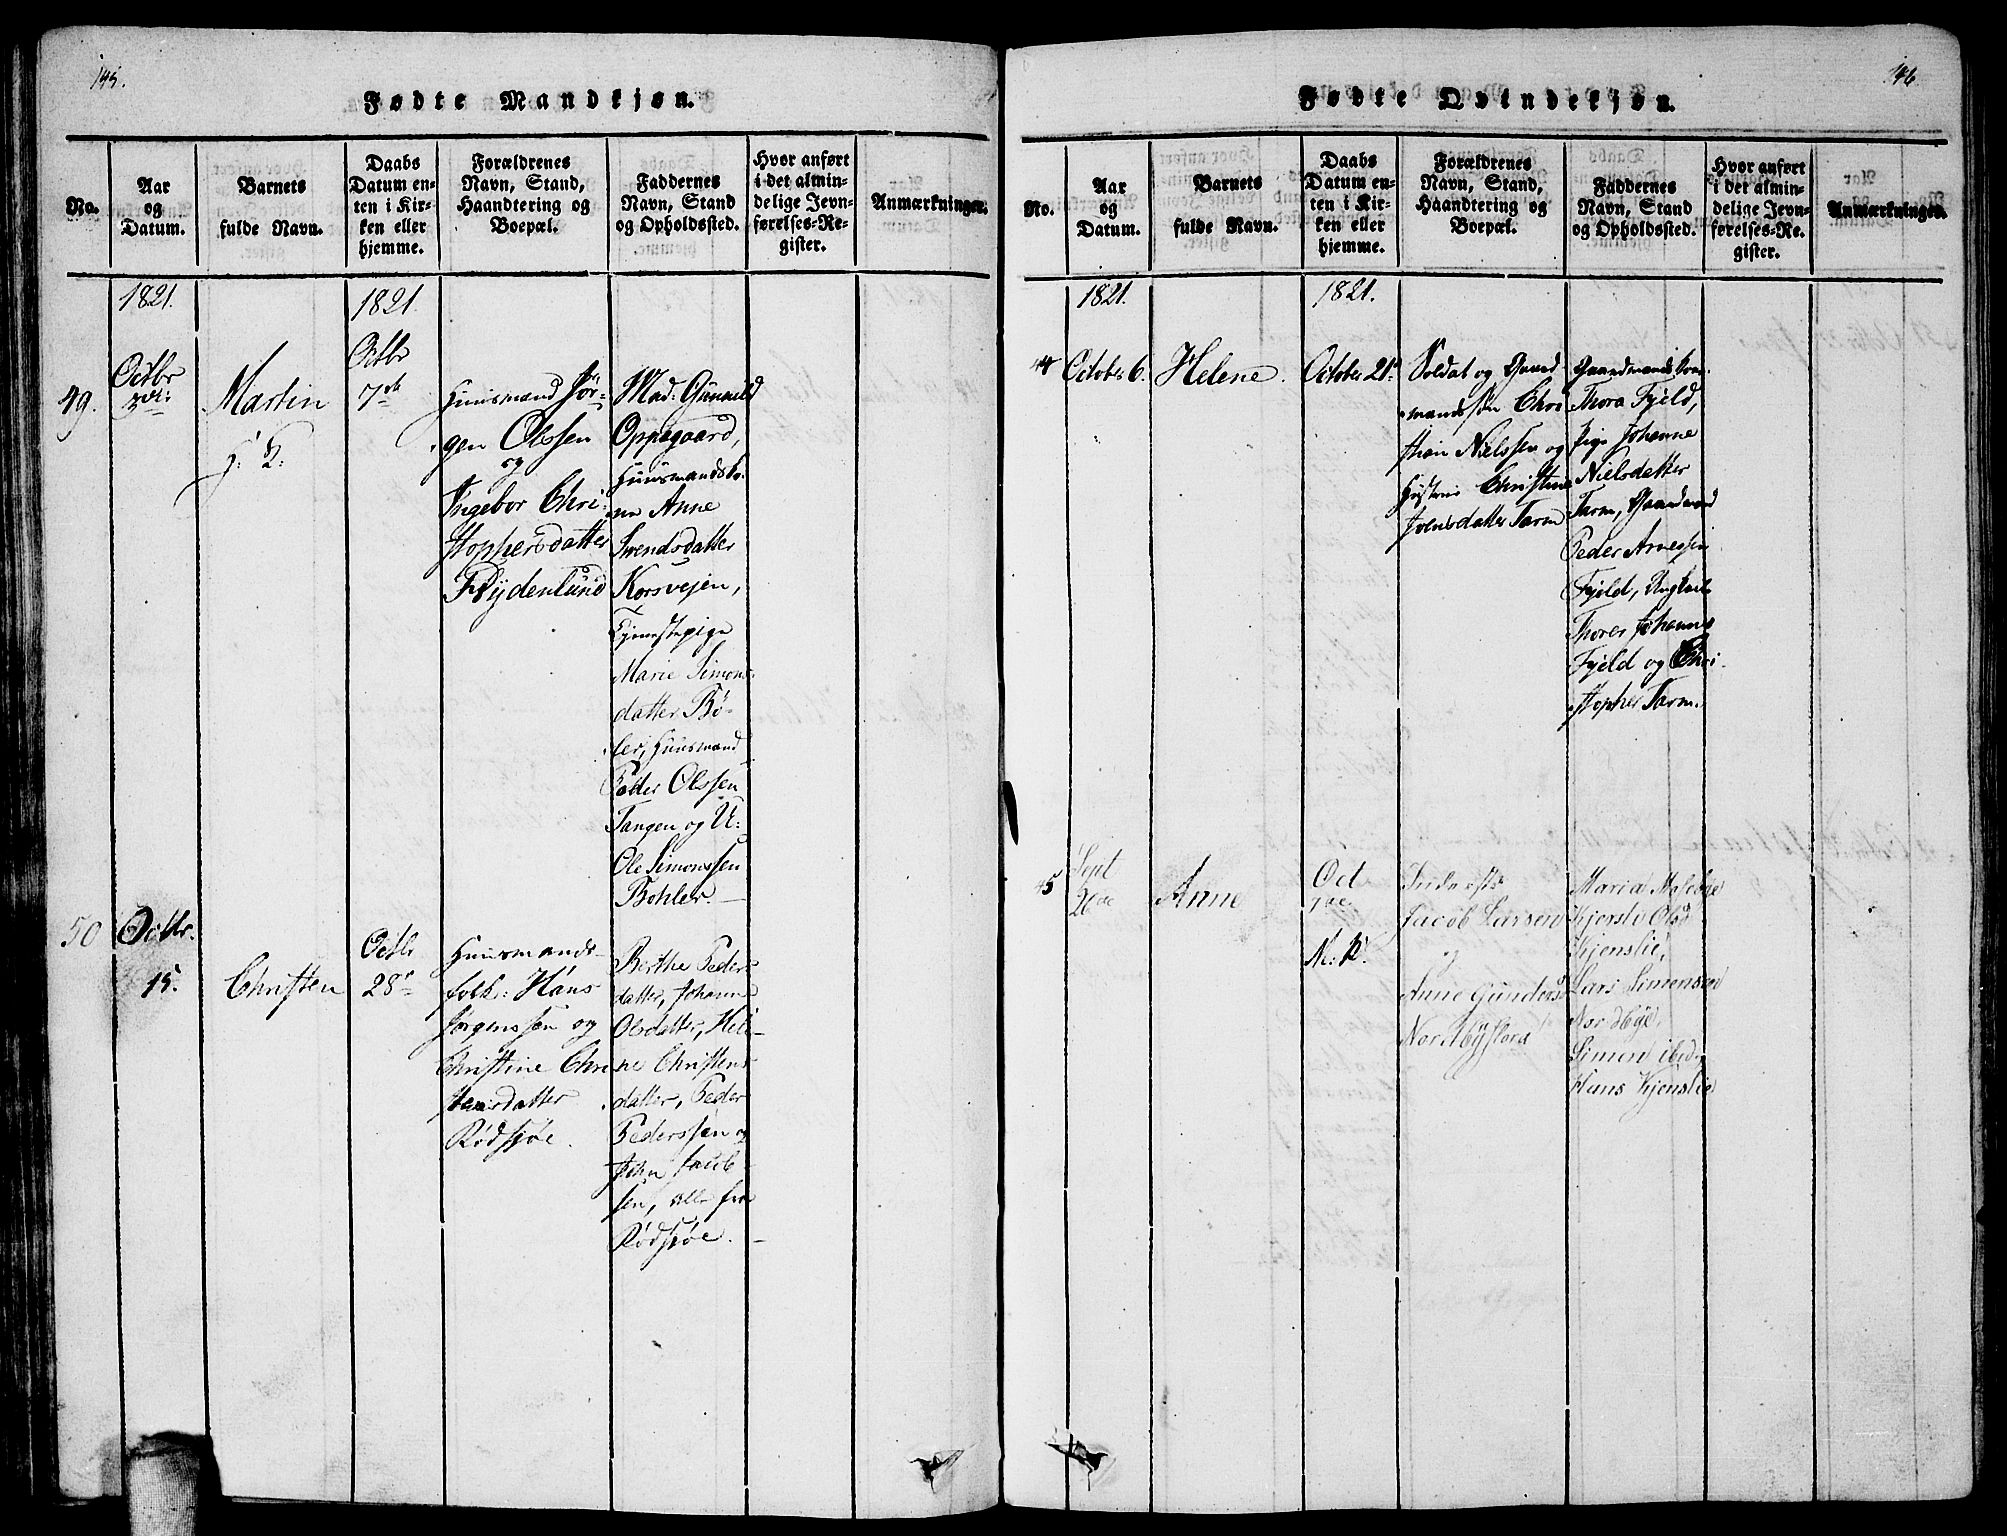 145.
Fødte Mandkjøn.
No.
Aar
og
Datum.
Barnets
fulde Navn.
Daabs
Datum en-
ten i Kir-
ken eller
hjemme.
Forældrenes
Navn, Stand,
Haandtering og
Boepæl.
Faddernes
Navn, Stand
og Opholdssted.
Hvor anført
i det almin-
delige Jevn-
førelses-Re-
gister.
Anmærkninger.
1821.
1821
49.
Octbr
3de:
Martin
Octbr
7de
Huusmand Jør-
gen Olssen
og
Ingebor Chri-
stophersdatter
Frydenlund
Mad: Gunnild
Oppegaard,
Huusmandsko-
ne Anne
Svendsdatter
Korsvejen,
Tjenestepige
Marie Simons-
datter Bø-
ler, Huusmand
Peder Olssen
Tangen og U:
Ole Simonssen
Bøhler.
50
Octbr.
15.
Christen
Octbr
28de
Huusmands-
folk: Hans
Jørgenssen og
Christine Chri
stensdatter
Rødsjøe.
Berthe Peders-
datter, Johanne
Olsdatter, Heli-
ne Christens-
datter, Peder
Pederssen og
John Jacob-
sen, alle fra
Rødsjøe.
146
Fødte Qvindekjøn.
No.
Aar
og
Datum.
Barnets
fulde Navn.
Daabs
Datum en-
ten i Kir-
ken eller
hjemme.
Forældrenes
Navn, Stand,
Haandtering og
Boepæl.
Faddernes
Navn, Stand
og Opholdssted.
Hvor anført
i det almin-
delige Jevn-
førelses-Re-
gister.
Anmærkninger.
1821.
1821.
44
October 6.
Helene.
October 21.
Soldat og Gaard
mandssøn Chri
stian Nielssen og
Hustrue Christine
Joensdatter Tarm
Gaardmandskone
Thora Fjeld,
Pige Johanne
Nielsdatter
Tarm, Gaardmand
Peder Arnessen
Fjeld, Ungkarl
Thorer Johannes
Fjeld og Chri-
stopher Tarm.
45
Sept
26de
Anne
Oct
7de
N: K.
Inderste
Jacob Larsen
og
Anne Gunders
Nordbystora
Maria
Kjersti Olsd
Kjenslie,
Lars Simensen
Nordbye,
Simen ibid.
Hans Kjenslie